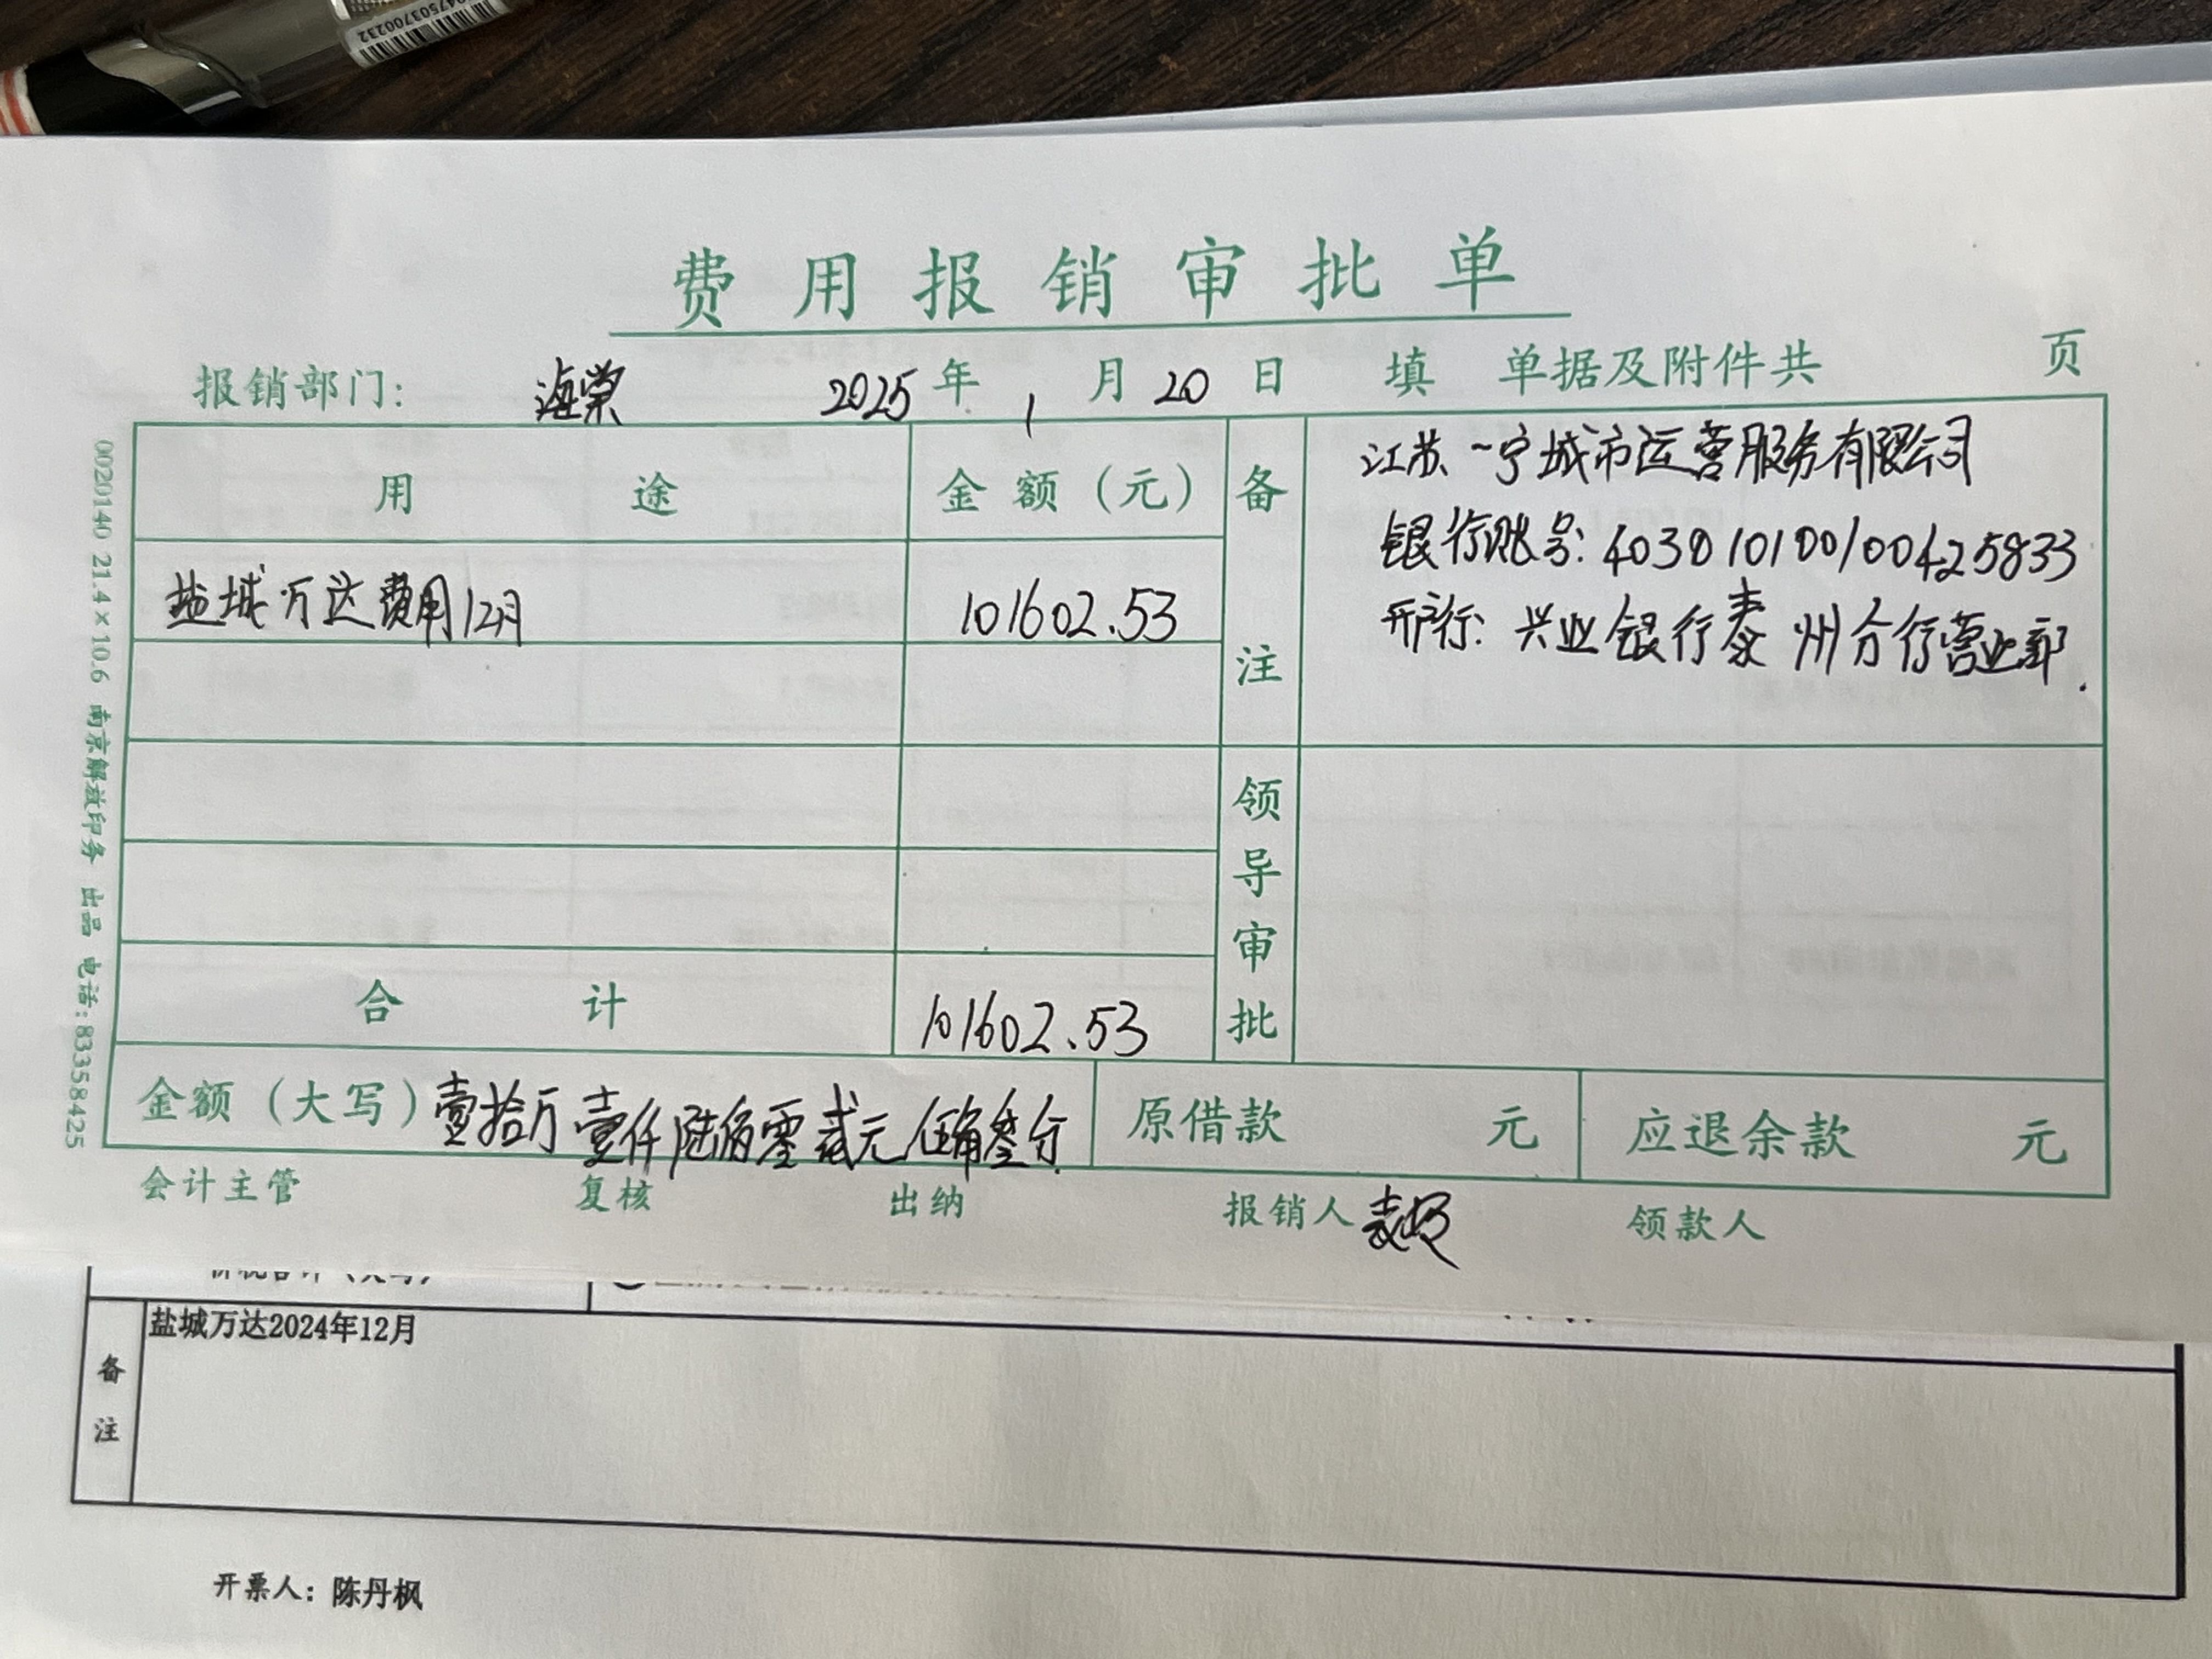 费用报销审批单
报销部门: 海棠 2025 年 1 月 20 日 填 单据及附件共 页
用途 金额(元) 备注
江苏一宁城市运营服务有限公司
银行账号: 403010100100425833
开户行: 兴业银行泰州分行营业部.
盐城万达费用12月 101602.53
领导审批
合计 101602.53
金额(大写) 壹拾万壹仟陆佰零贰元伍角叁分 原借款 元 应退余款 元
会计主管 复核 出纳 报销人 领款人
0020140 21.4×10.6 南京解放印务 出品 电话:83358425
备注
盐城万达2024年12月
开票人: 陈丹枫